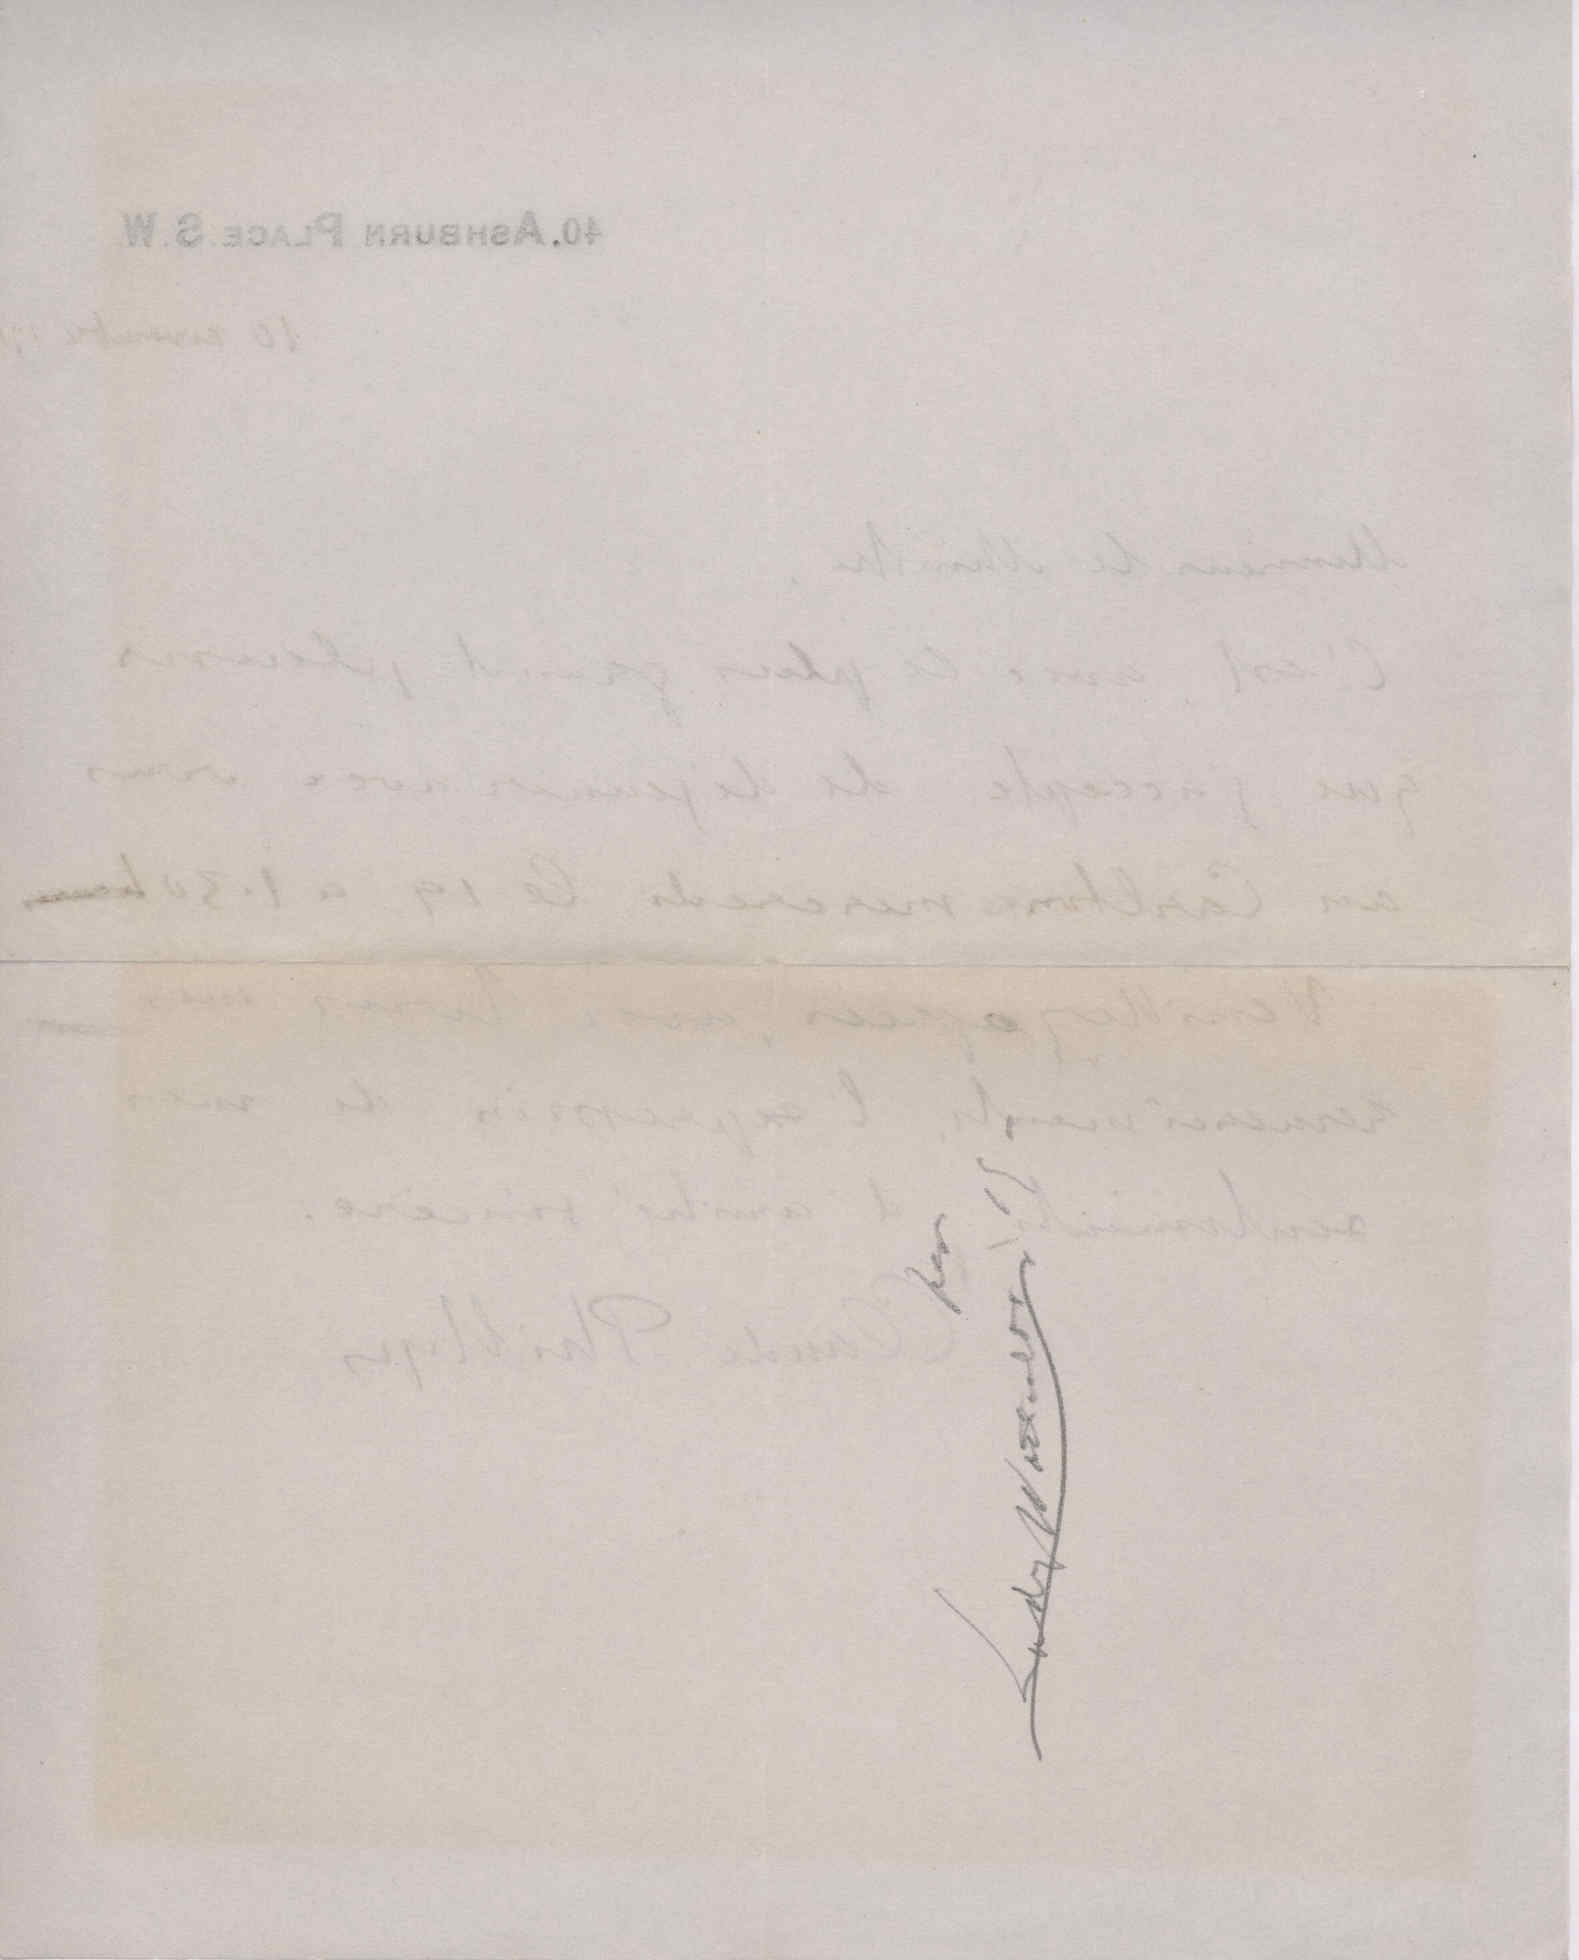 40, ASHBURN PLACE. S. W.
10 novembre
Monsieur le Ministre,
C'est avec le plus grand plaisir
que j'accepte de déjeuner avec vous
au Carlton mercredi le 19 a 1.30 heures
Veuillez agréer, avec tous mes
remerciments, l'expression de mes
sentiments d'amitié sincère.
Claude Phillips
Lady